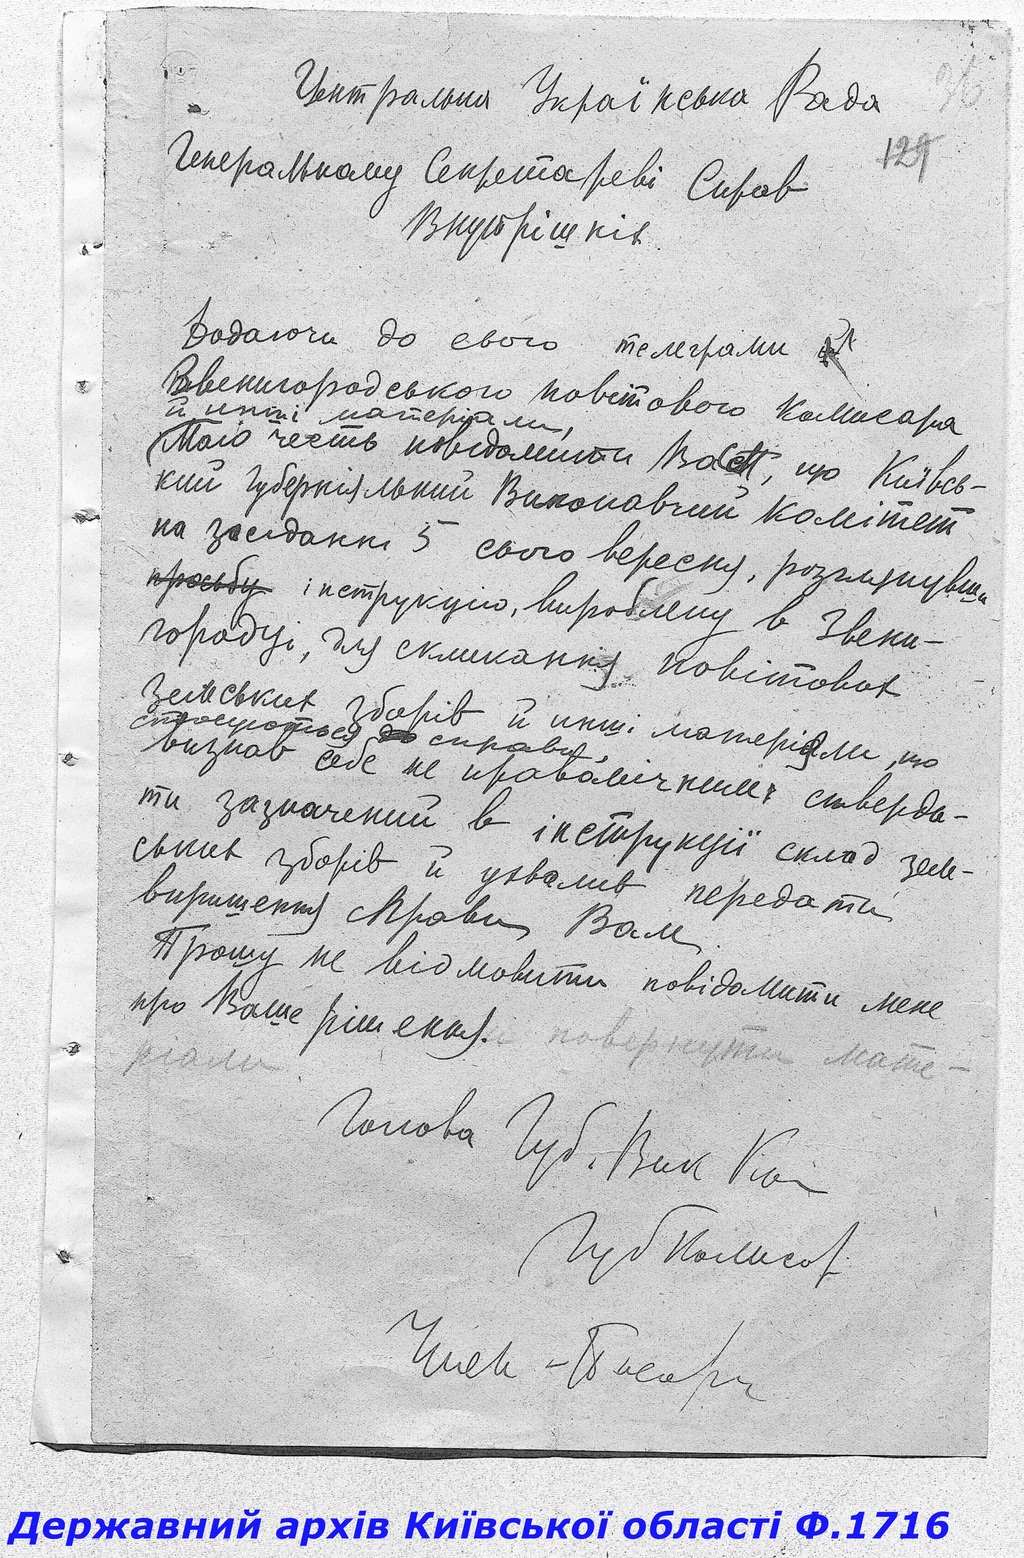 Центральна Українська Рада
129
Генеральному Секретареві Справ
Внутрішніх
Додаючи до свого телеграми
Звенигородського повітового комисара
й инші матеріали,
Маю честь повідомити Вас, що Київсь-
кий Губерніяльний Виконавчий Комітет
на засіданні 5 сього вересня, розглянувши
просьбу інструкцію, вироблену в Звени-
городці, для скликання повітових
земських зборів й инші матеріали, що
стосуються до справи,
визнав себе не правомічним стверди-
ти зазначений в інструкції склад зем-
ських зборів й ухвалив передати
вирішення справи Вам.
Прошу не відмовити повідомити мене
про Ваше рішення. і повернути мате-
ріали
Голова Губ. Вик Ком
Губ Комисар
Член - Писарь
Державний архів Київської області Ф.1716